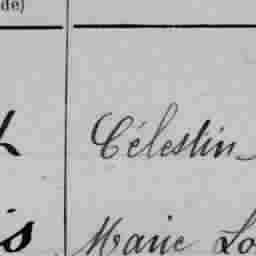 de)
Célestin
is Marie Lo